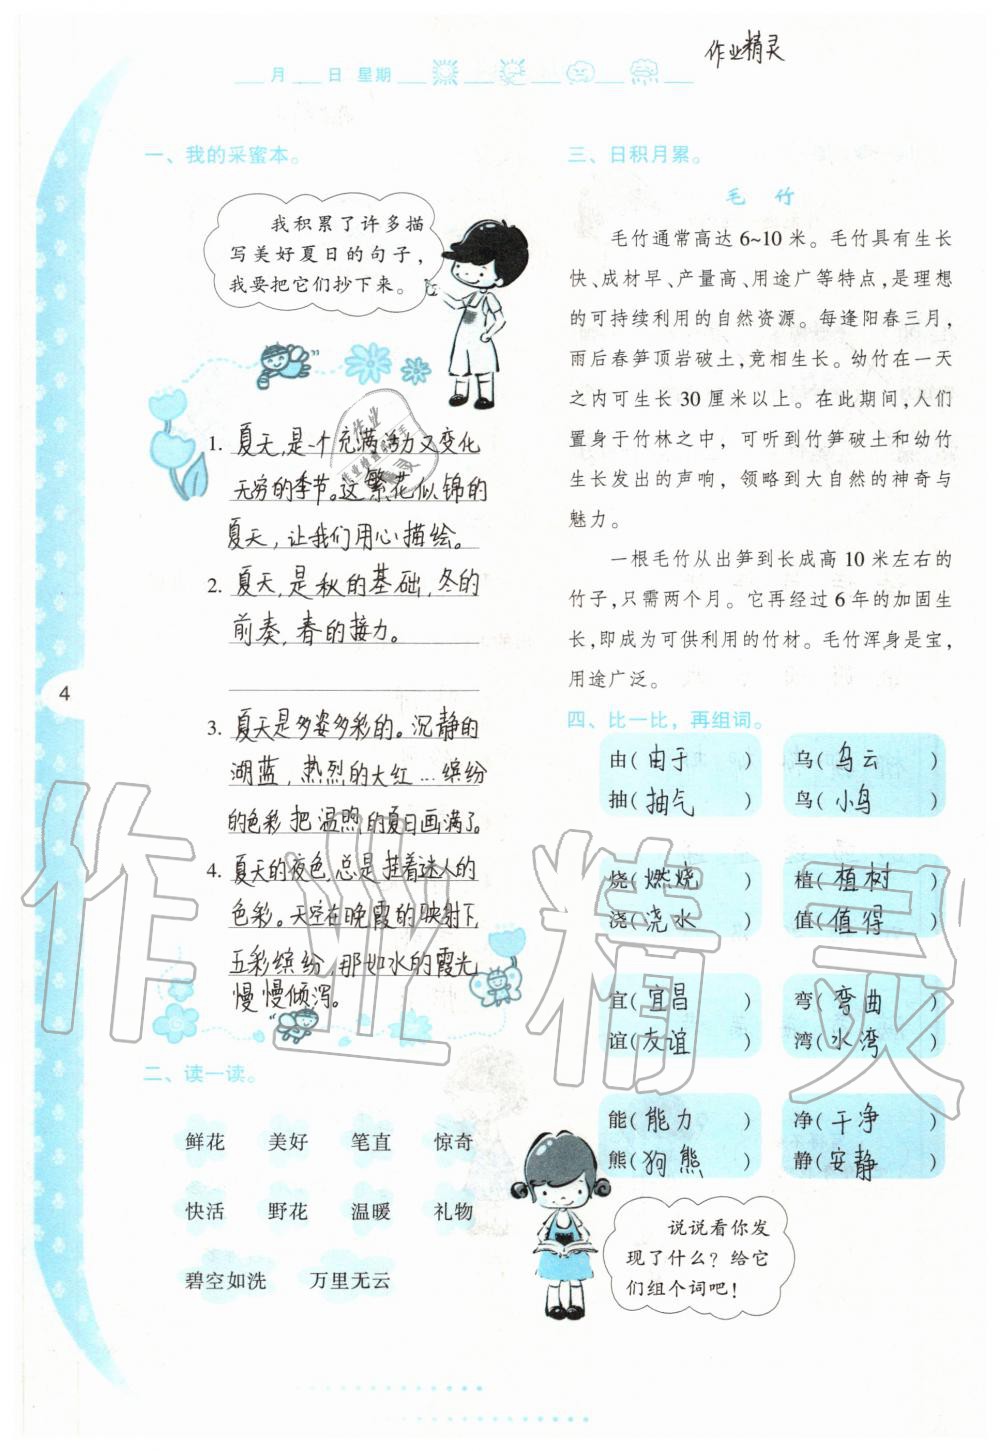 作业精灵
月 日 星期
一、我的采蜜本。
我积累了许多描
写美好夏日的句子，
我要把它们抄下来。
1. 夏天，是一个充满活力又变化
无穷的季节。这繁花似锦的
夏天，让我们用心描绘。
2. 夏天，是秋的基础，冬的
前奏，春的接力。
3. 夏天是多姿多彩的。沉静的
湖蓝，热烈的大红…缤纷
的色彩把温煦的夏日画满了。
4. 夏天的夜色，总是挂着迷人的
色彩。天空在晚霞的映射下，
五彩缤纷，那如水的霞光
慢慢倾泻。
二、读一读。
鲜花 美好 笔直 惊奇
快活 野花 温暖 礼物
碧空如洗 万里无云
4
三、日积月累。
毛 竹
毛竹通常高达 6~10 米。毛竹具有生长
快、成材早、产量高、用途广等特点，是理想
的可持续利用的自然资源。每逢阳春三月，
雨后春笋顶岩破土，竞相生长。幼竹在一天
之内可生长 30 厘米以上。在此期间，人们
置身于竹林之中，可听到竹笋破土和幼竹
生长发出的声响，领略到大自然的神奇与
魅力。
一根毛竹从出笋到长成高 10 米左右的
竹子，只需两个月。它再经过 6 年的加固生
长，即成为可供利用的竹材。毛竹浑身是宝，
用途广泛。
四、比一比，再组词。
由(由于) 乌(乌云)
抽(抽气) 鸟(小鸟)
烧(燃烧) 植(植树)
浇(浇水) 值(值得)
宜(宜昌) 弯(弯曲)
谊(友谊) 湾(水湾)
能(能力) 净(干净)
熊(狗熊) 静(安静)
说说看你发
现了什么？给它
们组个词吧！
作业精灵